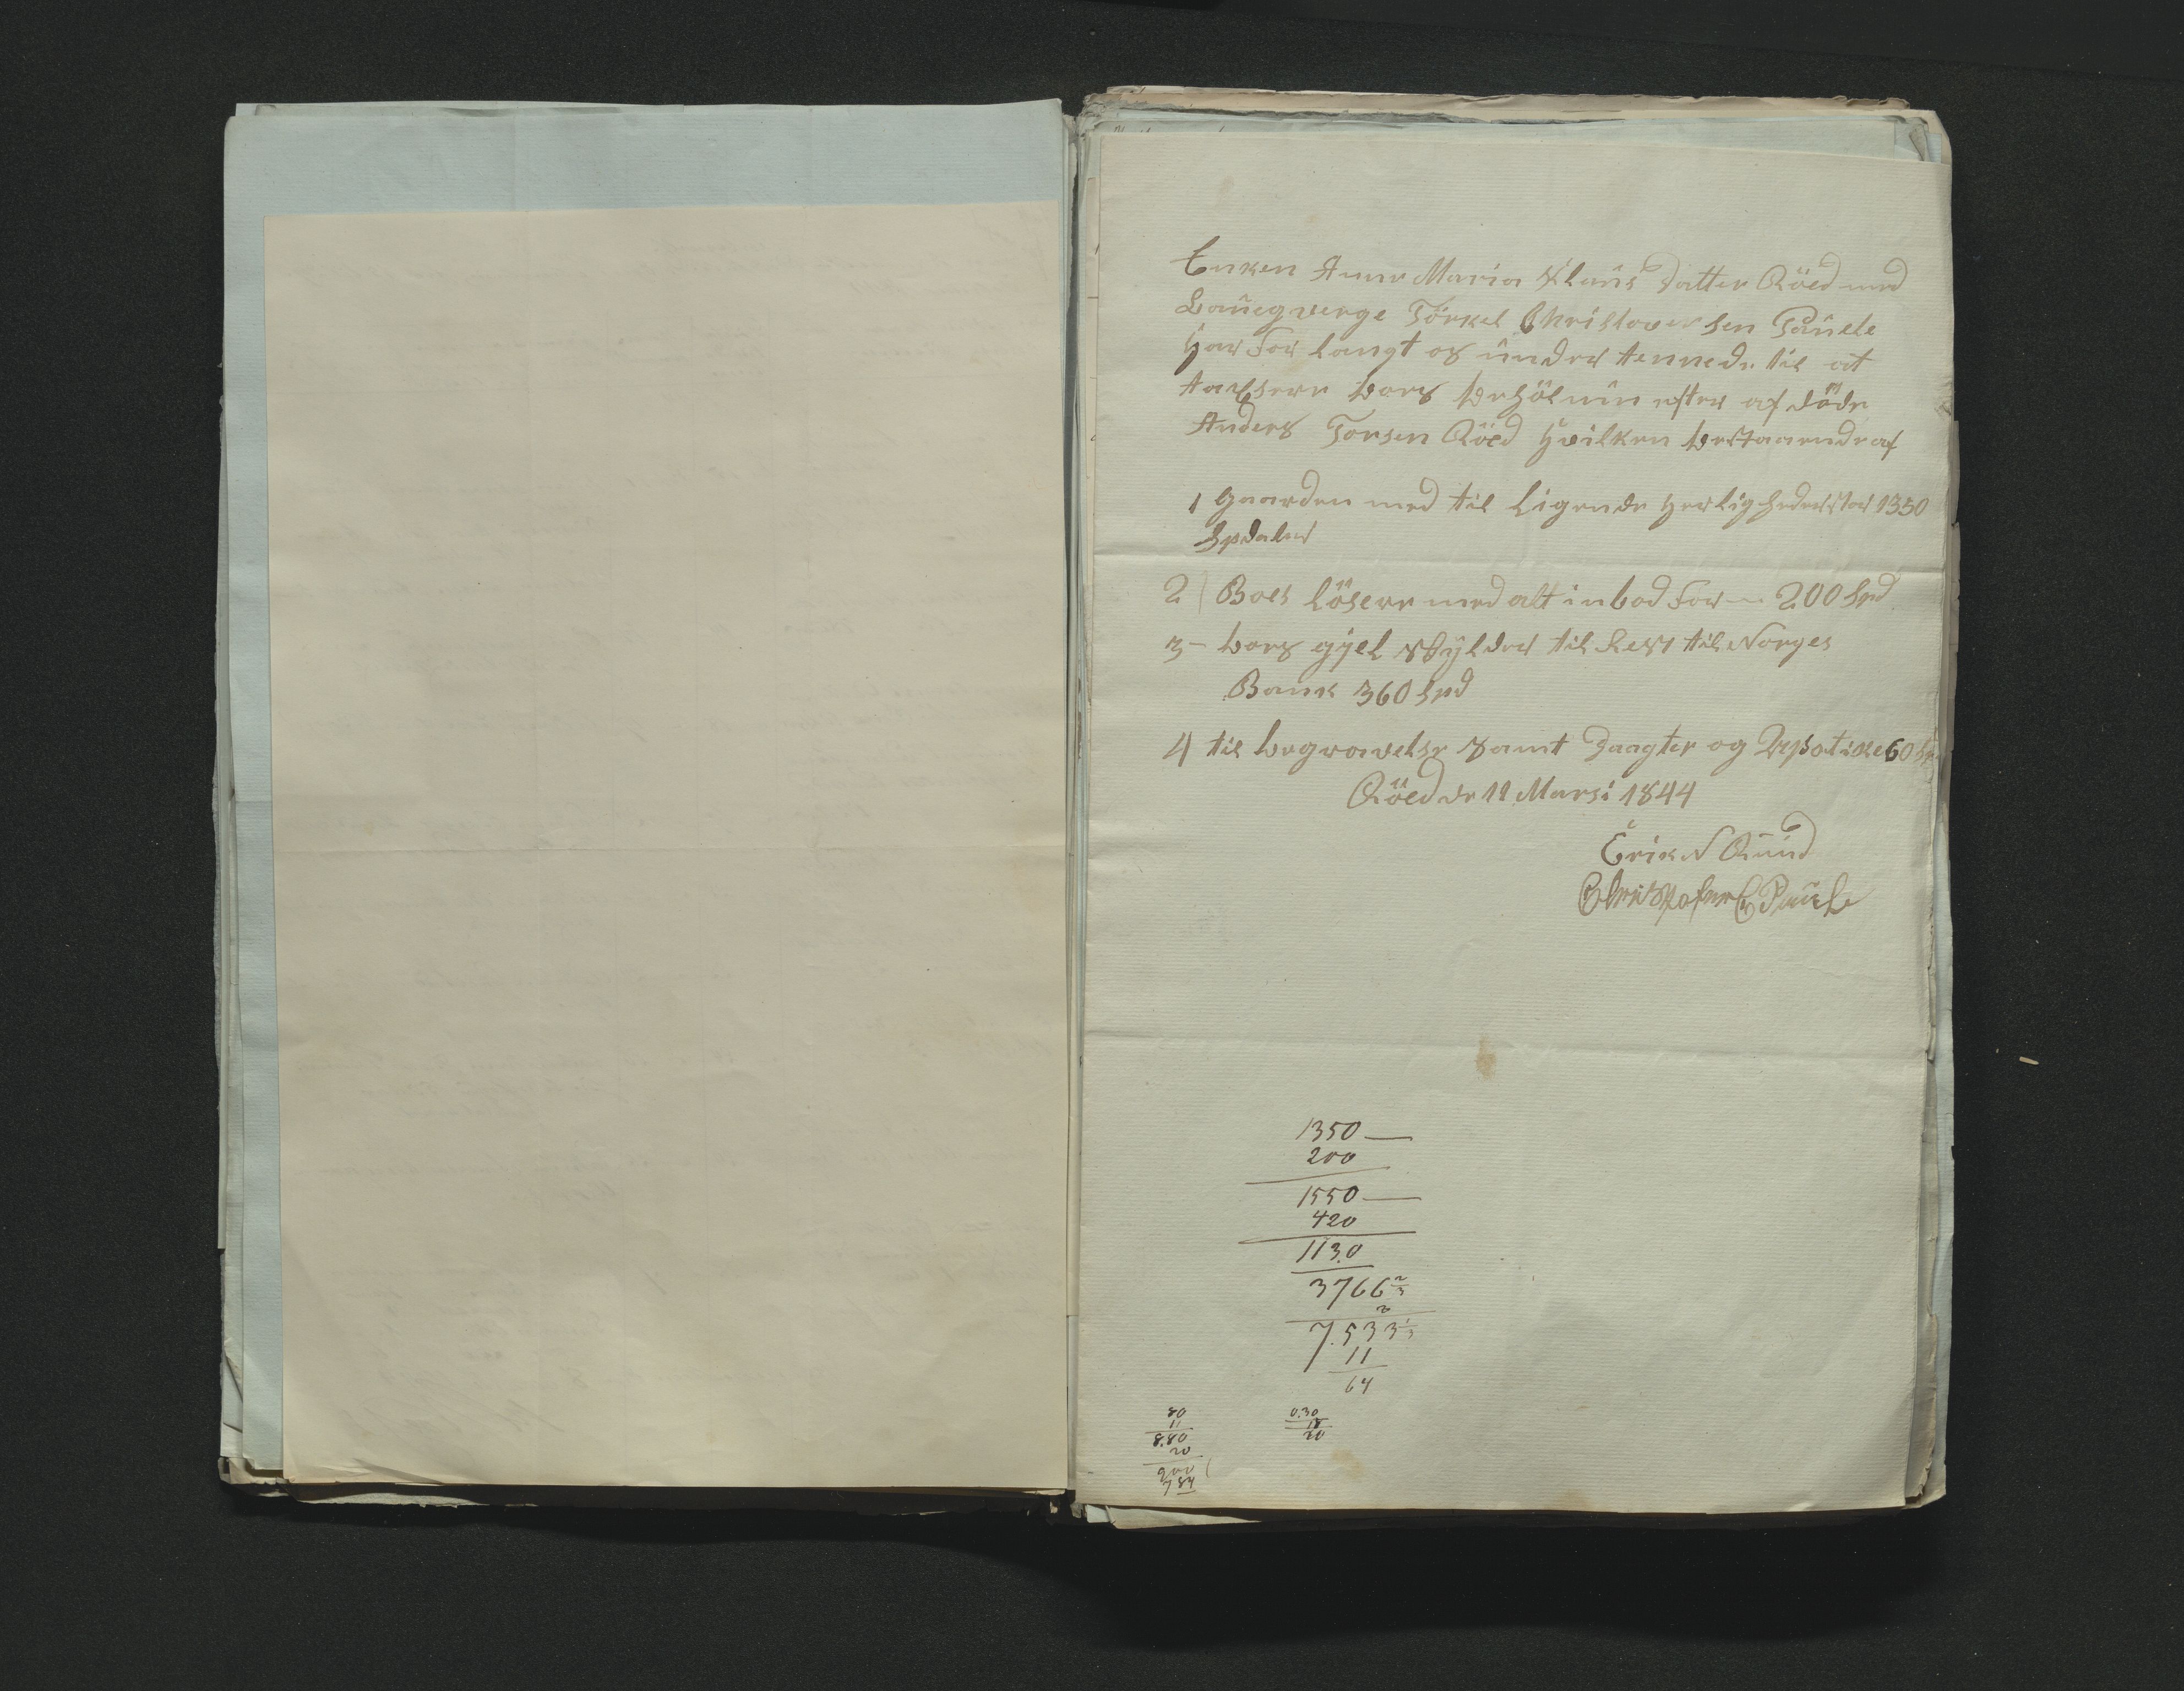 Enken Anne Maria Klaus Datter Röed med
Laugverge Törkel Christoversen Pauele
Har For langt os under tennede til at
taxsere boes beholnin efter af döde
Anders Torsen Röed Hvilken bestaaende af
1 Gaarden med til Ligende Herligheder for 1350
Spdaler
2) Boes Lösere med alt inbod For - 200 Spd
3 - boes gjel skylder til Rest til Norges
Bank 360 Spd
4 til begravelse samt Daagter og 60 Sp
Röed de 11 Marsi 1844
Erik N Rund
Christofer C Pauele
1350 —
200
1550 —
420
113.0
3766 2/3
2
7.533 1/3
11
64
80
11
8.80
20
900
784
0.30
18
20